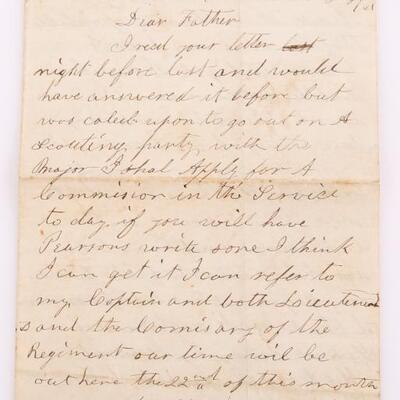 Dear Father
I recd your letter
night before last and would
have answered it before but
was caled upon to go out on A
Scouting party with the
Major I shal Apply for A
Commision in the Service
to day. if you will have
Pearsons write sone I think
I can get it I can refer to
my Captain and both Lieutenant
s and the Comisary of the
Regiment our time wil be
out here the 22nd of this month